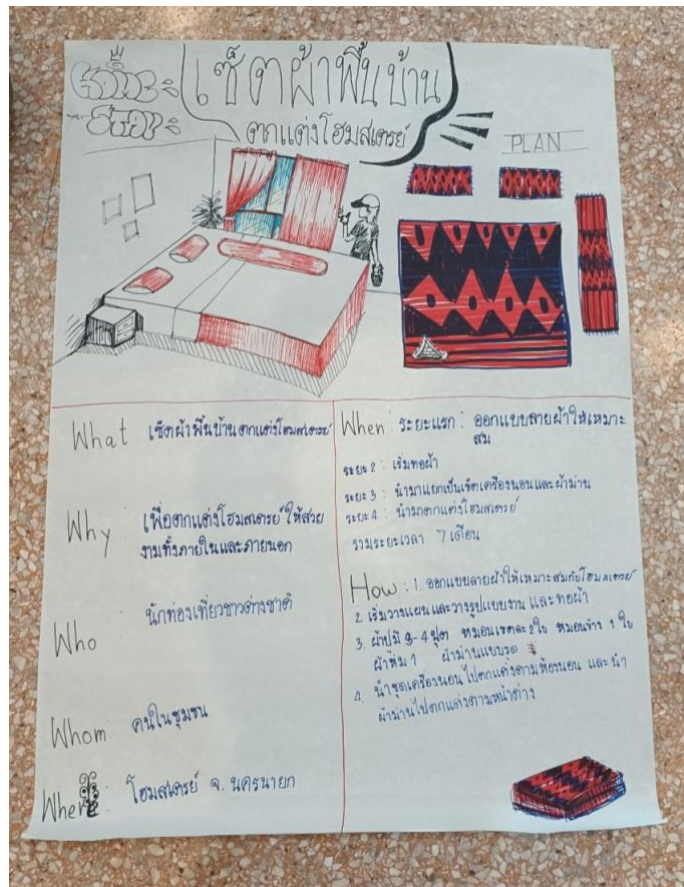 Home
Stay
เซ็ตผ้าพื้นบ้าน
ตกแต่งโฮมสเตรย์
PLAN
What เซ็ตผ้าพื้นบ้านตกแต่งโฮมสเตรย์
Why : เพื่อตกแต่งโฮมสเตรย์ให้สวย
งามทั้งภายในและภายนอก
Who : นักท่องเที่ยวชาวต่างชาติ
Whom: คนในชุมชน
Where : โฮมสเตรย์ จ. นครนายก
When : ระยะแรก : ออกแบบลายผ้าให้เหมาะ
สม
ระยะ 2 : เริ่มทอผ้า
ระยะ 3 : นำมาแยกเป็นเซ็ตเครื่องนอนและผ้าม่าน
ระยะ 4 : นำมาตกแต่งโฮมสเตรย์
รวมระยะเวลา 7 เดือน
How : 1. ออกแบบลายผ้าให้เหมาะสมกับโฮมสเตรย์
2. เริ่มวางแผนและวางรูปแบบงาน และทอผ้า
3. ผ้าปูมี 3-4 ฟุต หมอนเซตละ 2 ใบ หมอนข้าง 1 ใบ
ผ้าห่ม 1 ผ้าม่านแบบรูด
4. นำชุดเครื่องนอนไปตกแต่งตามห้องนอน และนำ
ผ้าม่านไปตกแต่งตามหน้าต่าง